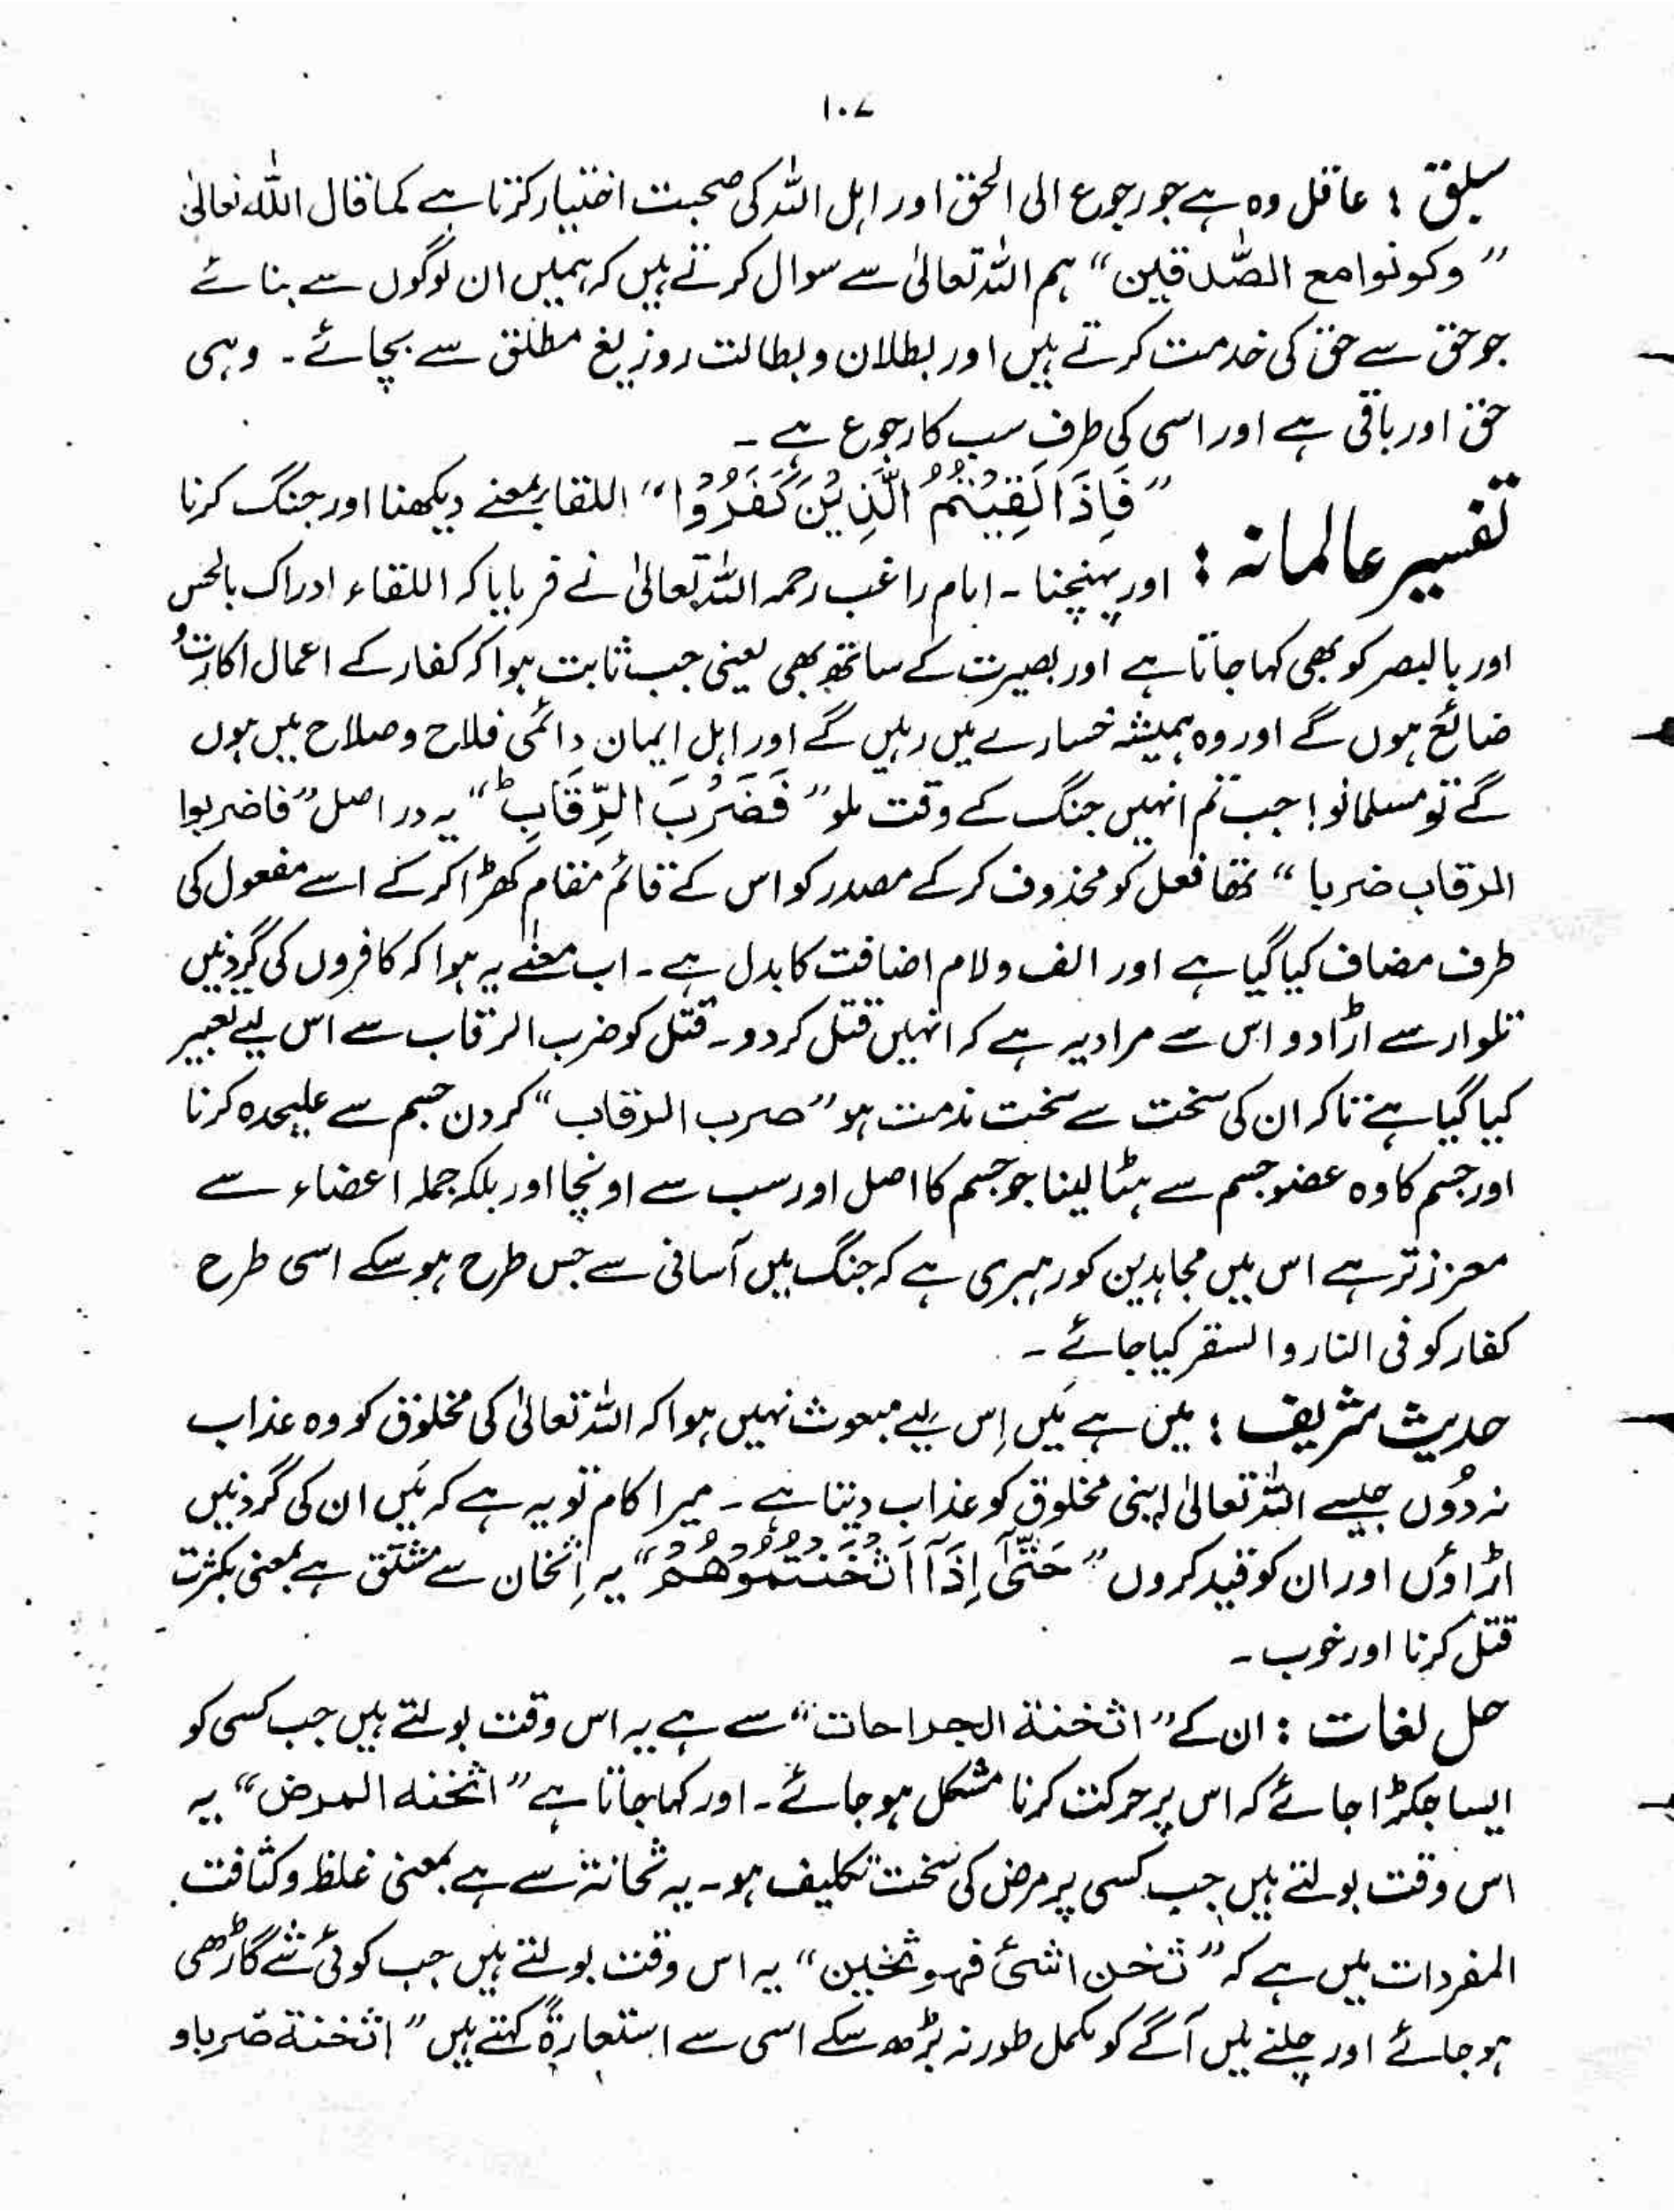 ۱۰۷
سبق : عاقل وہ ہے جو رجوع الی الحق اور اہل اللہ کی صحبت اختیار کرتا ہے کما قال اللہ تعالیٰ
”وکونوا مع الصّٰدقین“ ہم اللہ تعالیٰ سے سوال کرتے ہیں کہ ہمیں ان لوگوں سے بنائے
جو حق سے حق کی خدمت کرتے ہیں اور بطلان و بطالت و زیغ مطلق سے بچائے ۔ وہی
حق اور باقی ہے اور اسی کی طرف سب کا رجوع ہے ۔
تفسیر عالمانہ : ”فَاِذَا لَقِیْتُمُ الَّذِیْنَ کَفَرُوْا“ اللقاء بمعنے دیکھنا اور جنگ کرنا
اور پہنچنا ۔ امام راغب رحمہ اللہ تعالیٰ نے فرمایا کہ اللقاء ادراک بالحس
اور بالبصر کو بھی کہا جاتا ہے اور بصیرت کے ساتھ بھی یعنی جب ثابت ہوا کہ کفار کے اعمال اکارت و
ضائع ہوں گے اور وہ ہمیشہ خسارے میں رہیں گے اور اہل ایمان دائمی فلاح و صلاح میں ہوں
گے تو مسلمانو! جب تم انہیں جنگ کے وقت ملو ”فَضَرْبَ الرِّقَابِ ط“ یہ در اصل ”فاضربوا
الرقاب ضربا“ تھا فعل کو محذوف کر کے مصدر کو اس کے قائم مقام کھڑا کر کے اسے مفعول کی
طرف مضاف کیا گیا ہے اور الف و لام اضافت کا بدل ہے ۔ اب معنٰے یہ ہوا کہ کافروں کی گردنیں
تلوار سے اڑا دو اس سے مراد یہ ہے کہ انہیں قتل کر دو ۔ قتل کو ضرب الرقاب سے اس لیے تعبیر
کیا گیا ہے تاکہ ان کی سخت سے سخت مذمت ہو ”ضرب الرقاب“ گردن جسم سے علیحدہ کرنا
اور جسم کا وہ عضو جسم سے ہٹا لینا جو جسم کا اصل اور سب سے اونچا اور بلکہ جملہ اعضاء سے
معزز تر ہے اس میں مجاہدین کو رہبری ہے کہ جنگ میں آسانی سے جس طرح ہو سکے اسی طرح
کفار کو فی النار و السقر کیا جائے ۔
حدیث شریف : میں ہے مَیں اِس لیے مبعوث نہیں ہوا کہ اللہ تعالیٰ کی مخلوق کو وہ عذاب
نہ دُوں جیسے اللہ تعالیٰ اپنی مخلوق کو عذاب دیتا ہے ۔ میرا کام تو یہ ہے کہ مَیں ان کی گردنیں
اڑاؤں اور ان کو قید کروں ”حَتّٰٓی اِذَآ اَثْخَنْتُمُوْھُمْ“ یہ اِثخان سے مشتق ہے بمعنی بکثرت
قتل کرنا اور خوب ۔
حل لغات : ان کے ”اثخنة الجراحات“ سے ہے یہ اس وقت بولتے ہیں جب کسی کو
ایسا جکڑا جائے کہ اس پر حرکت کرنا مشکل ہو جائے ۔ اور کہا جاتا ہے ”اثخنه المرض“ یہ
اس وقت بولتے ہیں جب کسی پر مرض کی سخت تکلیف ہو ۔ یہ ثخانة سے ہے بمعنی غلظ و کثافت
المفردات میں ہے کہ ”ثخن الشئ فهو ثخین“ یہ اس وقت بولتے ہیں جب کوئی شے گاڑھی
ہو جائے اور چلنے میں آگے کو مکمل طور نہ بڑھ سکے اسی سے استعارةً کہتے ہیں ”اثخنة ضربا و